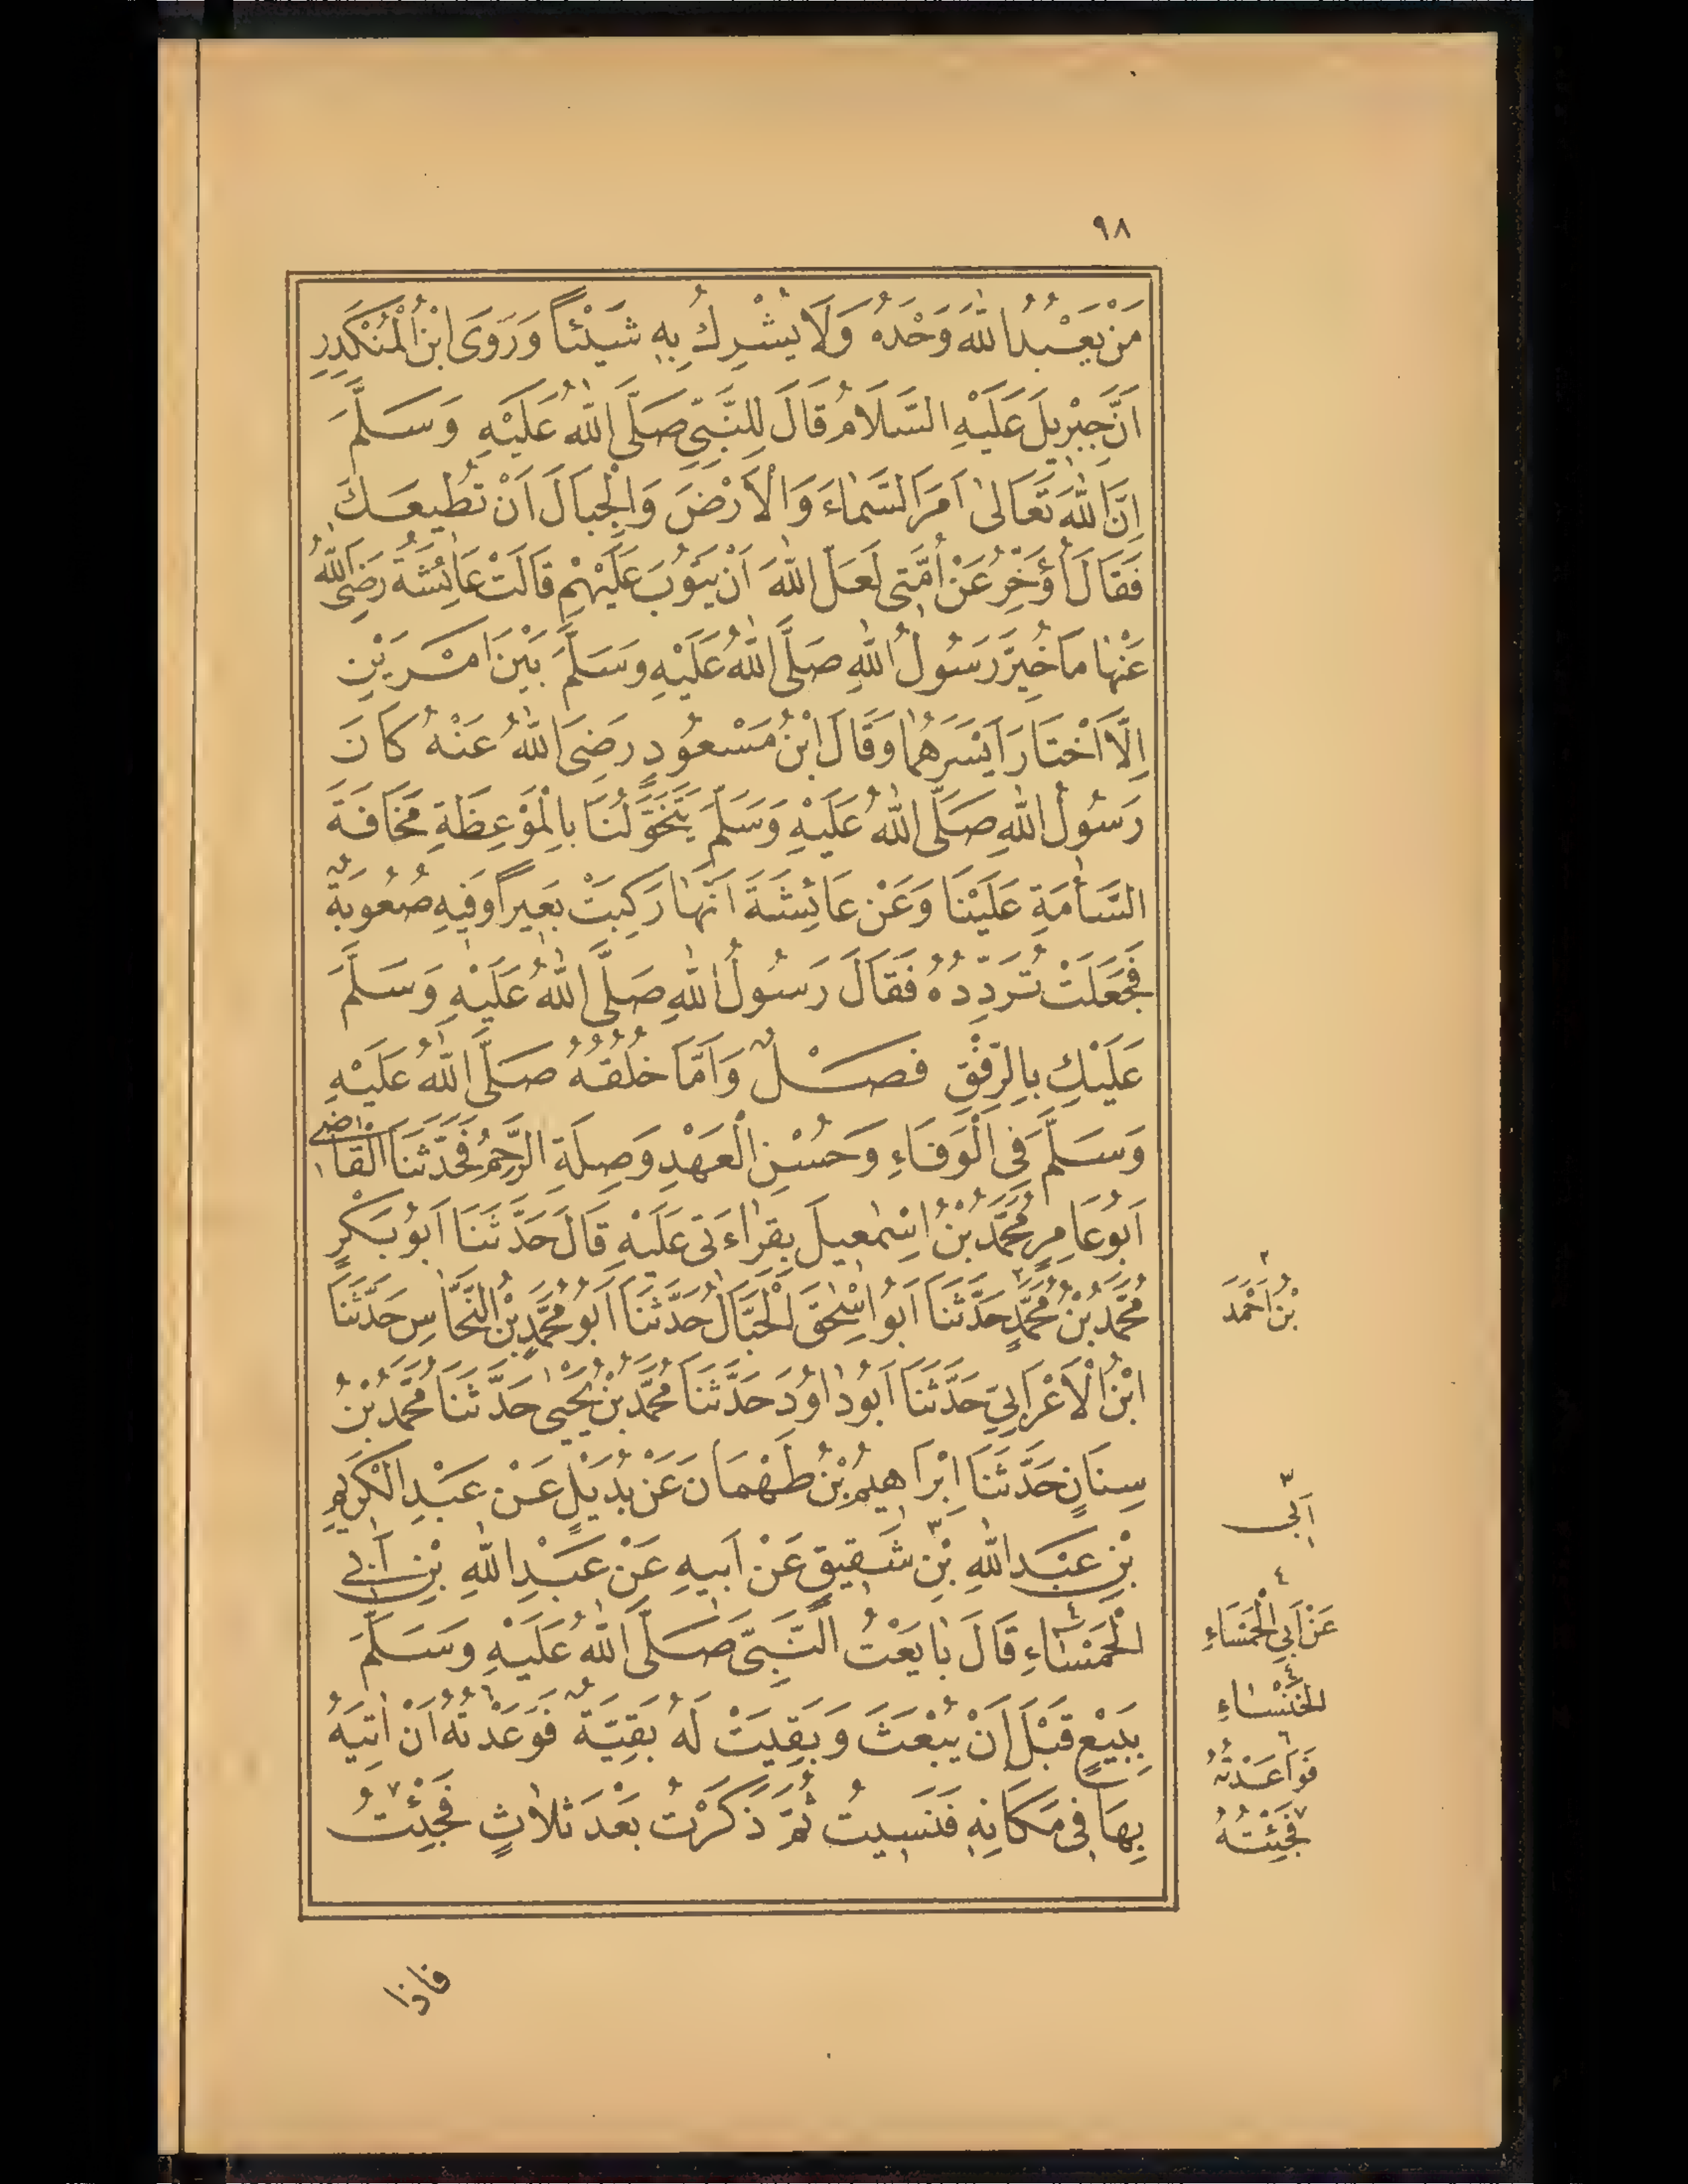 ٩٨
مَنْ يَعْبُدُ اللهَ وَحْدَهُ وَلَا يُشْرِكُ بِهِ شَيْئًا وَرَوَى ابْنُ الْمُنْكَدِرِ
اَنَّ جِبْرِيلَ عَلَيْهِ السَّلَامُ قَالَ لِلنَّبِيِّ صَلَّى اللهُ عَلَيْهِ وَسَلَّمَ
اِنَّ اللهَ تَعَالَى اَمَرَ السَّمَاءَ وَالْاَرْضَ وَالْجِبَالَ اَنْ تُطِيعَكَ
فَقَالَ اُؤَخِّرُ عَنْ اُمَّتِى لَعَلَّ اللهَ اَنْ يَتُوبَ عَلَيْهِمْ قَالَتْ عَائِشَةُ رَضِىَ اللهُ
عَنْهَا مَا خُيِّرَ رَسُولُ اللهِ صَلَّى اللهُ عَلَيْهِ وَسَلَّمَ بَيْنَ اَمْرَيْنِ
اِلَّا اخْتَارَ اَيْسَرَهُمَا وَقَالَ ابْنُ مَسْعُودٍ رَضِىَ اللهُ عَنْهُ كَانَ
رَسُولُ اللهِ صَلَّى اللهُ عَلَيْهِ وَسَلَّمَ يَتَخَوَّلُنَا بِالْمَوْعِظَةِ مَخَافَةَ
السَّاْمَةِ عَلَيْنَا وَعَنْ عَائِشَةَ اَنَّهَا رَكِبَتْ بَعِيرًا وَفِيهِ صُعُوبَةٌ
فَجَعَلَتْ تُرَدِّدُهُ فَقَالَ رَسُولُ اللهِ صَلَّى اللهُ عَلَيْهِ وَسَلَّمَ
عَلَيْكِ بِالرِّفْقِ فَصْلٌ وَاَمَّا خُلُقُهُ صَلَّى اللهُ عَلَيْهِ
وَسَلَّمَ فِى الْوَفَاءِ وَحُسْنِ الْعَهْدِ وَصِلَةِ الرَّحِمِ فَحَدَّثَنَا الْقَاضِى
اَبُو عَامِرٍ مُحَمَّدُ بْنُ اِسْمٰعِيلَ بِقِرَاءَتِى عَلَيْهِ قَالَ حَدَّثَنَا اَبُو بَكْرٍ
مُحَمَّدُ بْنُ مُحَمَّدٍ٢ حَدَّثَنَا اَبُو اِسْحٰقَ الْحَبَّالُ حَدَّثَنَا اَبُو مُحَمَّدِ بْنُ النَّحَّاسِ حَدَّثَنَا
ابْنُ الْاَعْرَابِيِّ حَدَّثَنَا اَبُو دَاوُدَ حَدَّثَنَا مُحَمَّدُ بْنُ يَحْيٰى حَدَّثَنَا مُحَمَّدُ بْنُ
سِنَانٍ حَدَّثَنَا اِبْرَاهِيمُ بْنُ طَهْمَانَ عَنْ بُدَيْلٍ عَنْ عَبْدِ الْكَرِيمِ
بْنِ عَبْدِ اللهِ بْنِ٣ شَقِيقٍ عَنْ اَبِيهِ عَنْ عَبْدِ اللهِ بْنِ اَبِى
الْحَمْسَاءِ٤ قَالَ بَايَعْتُ النَّبِىَّ صَلَّى اللهُ عَلَيْهِ وَسَلَّمَ
بِبَيْعٍ قَبْلَ اَنْ يُبْعَثَ وَبَقِيَتْ لَهُ بَقِيَّةٌ فَوَعَدْتُهُ٦ اَنْ اٰتِيَهُ
بِهَا فِى مَكَانِهِ فَنَسِيتُ ثُمَّ ذَكَرْتُ بَعْدَ ثَلَاثٍ فَجِئْتُ٧
٢
بْنُ اَحْمَدَ
٣
اَبِى
٤
عَنْ اَبِى الْحَمْسَاءِ
٤
الْخَنْسَاءِ
٦
فَوَاعَدْتُهُ
٧ فَجِئْتُهُ
فاذا